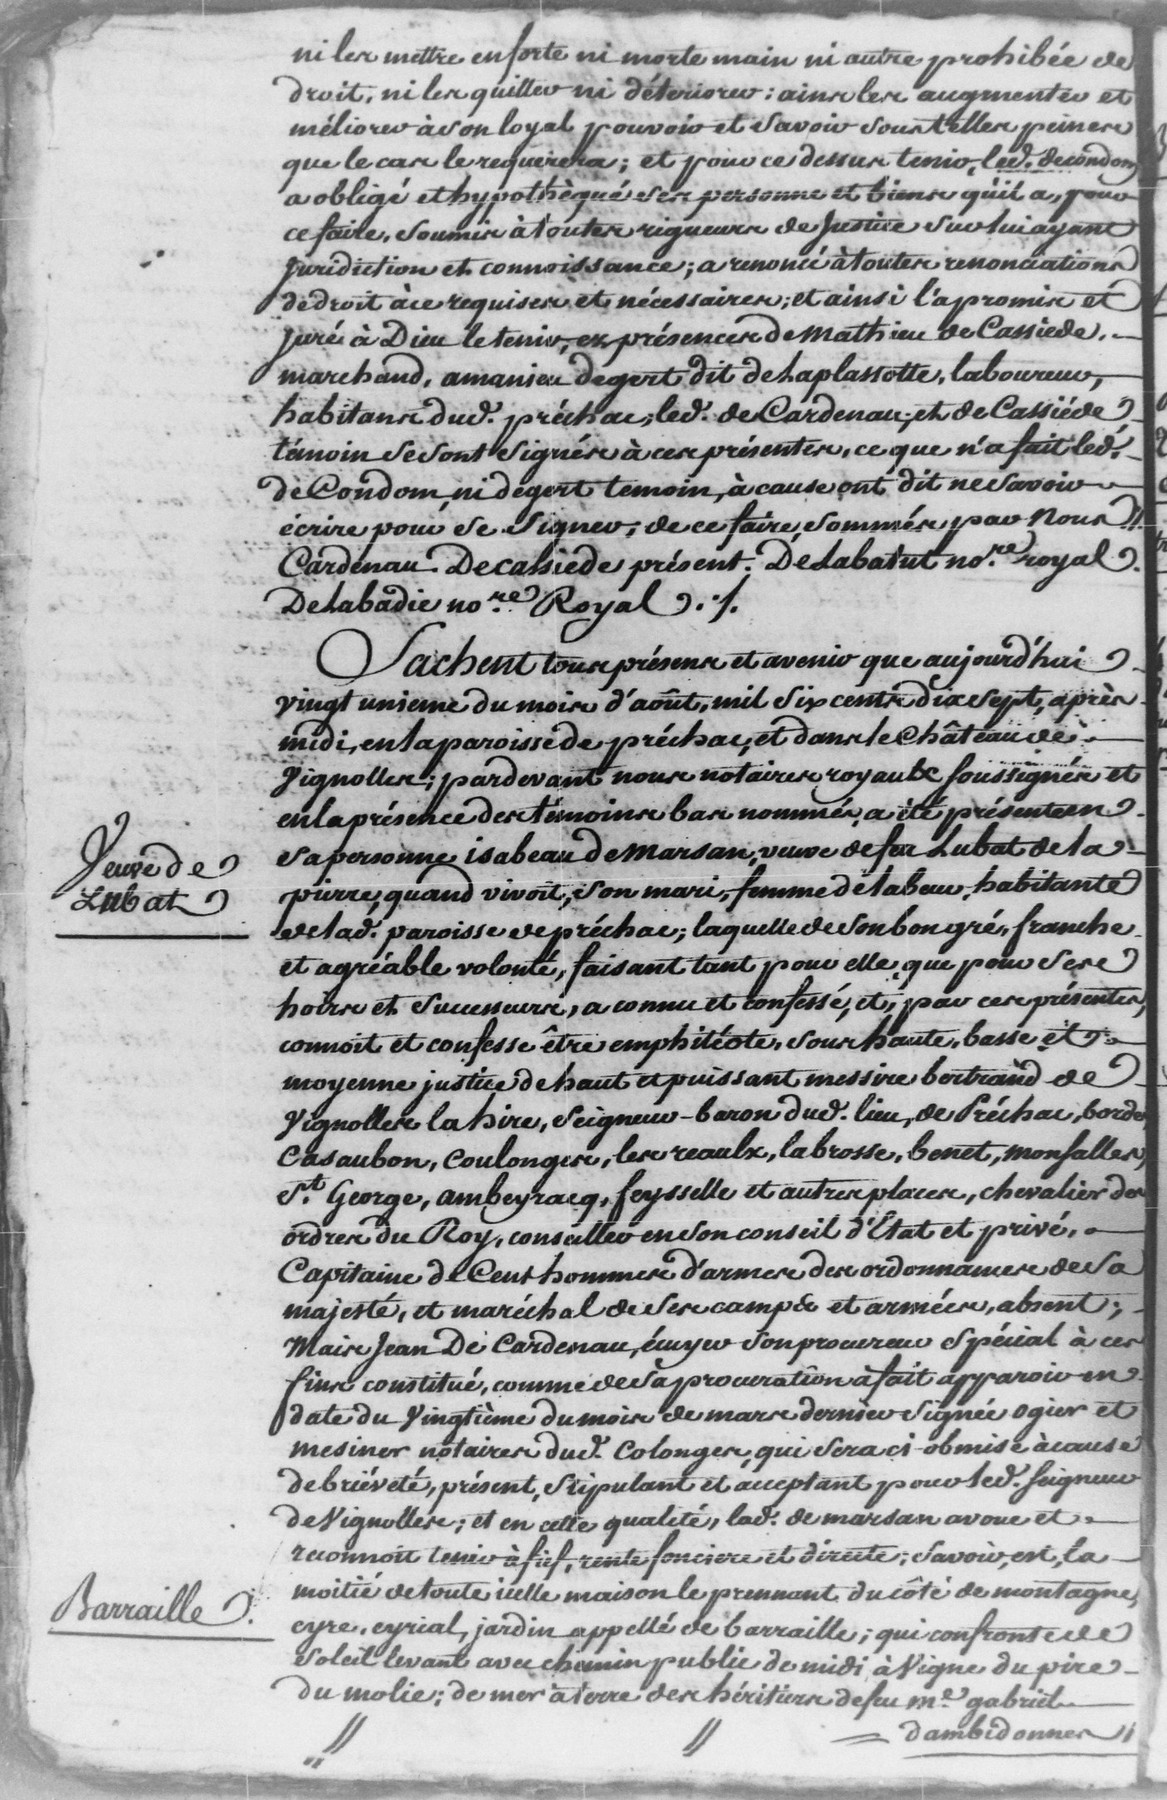 ni les mettre en forte ni morte main ni autre prohibée de
droit, ni les quiller ni détériorer: ains les augmenter et
méliorer à son loyal pouvoir et savoir sous telles peines
que le cas le requérera; et pour ce dessus tenir, led. de condom
a obligé et hypothèqué ses personne et biens qu'il a, pour
ce faire, soumis à toutes rigueurs de Justice sur lui ayant
Juridiction et connoissance; a renoncé à toutes renonciations
de droit à ce requises et nécessaires; et ainsi l'a promis et
Juré à Dieu le tenir, ez présences de Mathieu de Cassiede,
marchand, amanieu degert dit de Laplassotte, laboureur,
habitans dud. préchac; led. de Cardenau, et de Cassiéde
témoin se sont signés à ces présentes, ce que n'a fait led.
de Condom ni degert temoin, à cause ont dit ne savoir
écrire pour se signer, de ce faire sommés par Nous //
Cardenau. Decassiede présent. De Labatut no.re royal.
De Labadie no.re Royal ./.
Sachent tous présens et avenir que aujourd'hui
vingt unieme du mois d'août, mil six cents dix sept, après
midi, en la paroisse de préchac, et dans le Château de
Vignolles; pardevant nous notaires royaulx soussignés et
en la présence des témoins bas nommés, a été présente en
sa personne isabeau de Marsan, veuve de feu Lubat de la
pierre, quand vivoit, son mari, femme de labeur, habitante
de lad. paroisse de préchac; laquelle de son bon gré, franche
et agréable volonté, faisant tant pour elle, que pour ses
hoirs et successeurs, a connu et confessé, et, par ces présentes,
connoit et confesse être emphitéote, sous haute, basse et
moyenne justice de haut et puissant messire bertrand de
Vignolles la hire, seigneur-baron dud. lieu, de Préchac, bordes
Casaubon, Coulonges, les reaulx, labrosse, benet, monsalles,
S.t George, ambeyracq, feysselle et autres places, chevalier des
ordres du Roy, conseiller en son conseil d'État et privé,
Capitaine de Cent hommes d'armes des ordonnances de Sa
majesté, et maréchal de ses camps et armées, absent;
Mais Jean De Cardenau, écuyer son procureur spécial à ces
fins constitué, comme de sa procuration a fait apparoir en
date du Vingtième du mois de mars dernier signée ogier et
mesiner notaires dud. Colonges, qui sera ci-obmise à cause
de briéveté, présent, stipulant et acceptant pour led. seigneur
de Vignolles; et en cette qualité, lad. de marsan avoue et
reconnoit tenir à fief, rente fonciere et directe; savoir, est, la
moitié de toute icelle maison le prennant du côté de montagne,
eyre, eyrial, jardin appellé de barraille; qui confronte de
soleil levant avec chemin public de midi à Vigne du pire
du molie; de mer à terre des héritiers de feu m.e gabriel
// // = dambidonnes //
Veuve de
Lubat
Barraille.